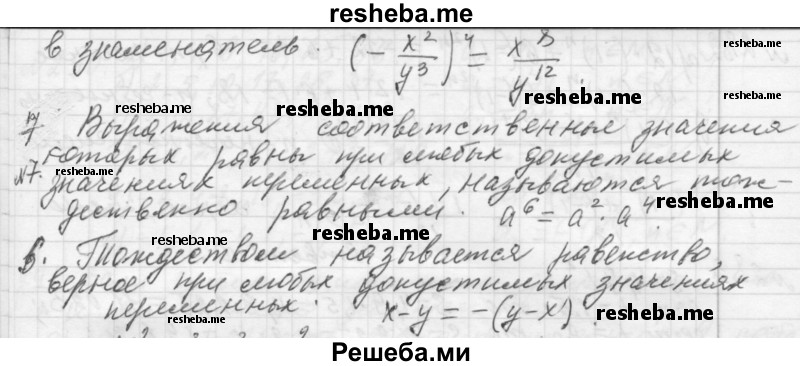 resheba.me
в знаменатель. (- x²/y³)⁴ = x⁸/y¹² .
resheba.me
resheba.me
resheba.me
7 Выражения соответственные значения
resheba.me
№7. которых равны при любых допустимых
resheba.me
значениях переменных, называются тож-
resheba.me
дественно равными. a⁶ = a² · a⁴.
resheba.me
resheba.me
б. Тождеством называется равенство,
верное при любых допустимых значениях
resheba.me
переменных. x-y = -(y-x)
resheba.me
resheba.me
Решеба.ми